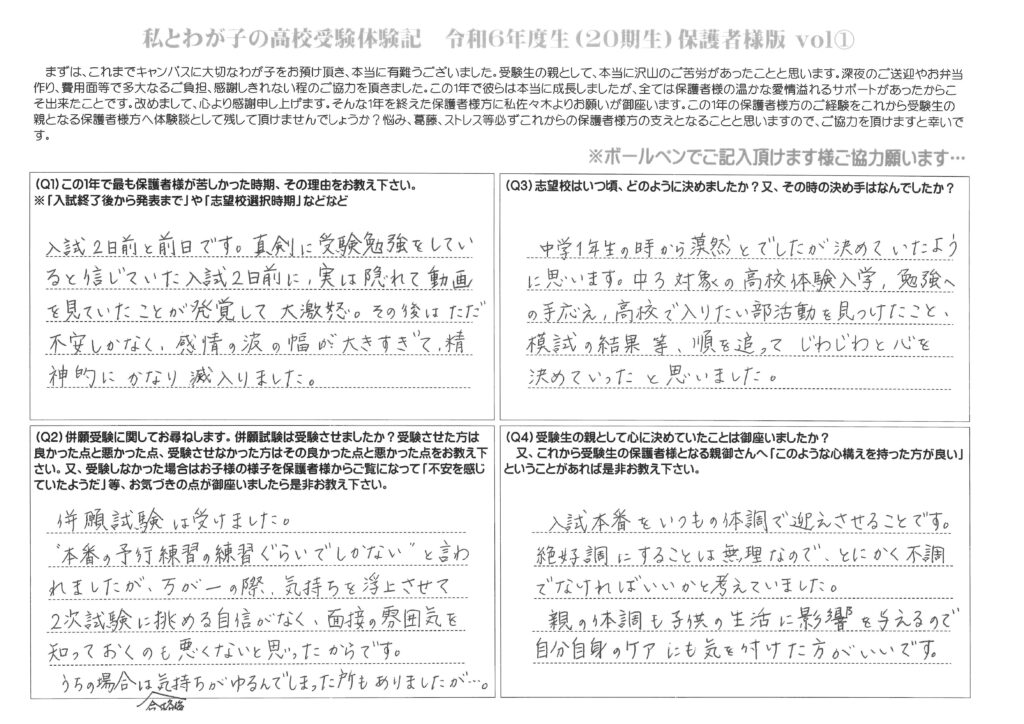 私とわが子の高校受験体験記　令和6年度生（20期生）保護者様版 vol①
　まずは、これまでキャンパスに大切なわが子をお預け頂き、本当に有難うございました。受験生の親として、本当に沢山のご苦労があったことと思います。深夜のご送迎やお弁当
作り、費用面等で多大なるご負担、感謝しきれない程のご協力を頂きました。この1年で彼らは本当に成長しましたが、全ては保護者様の温かな愛情溢れるサポートがあったからこ
そ出来たことです。改めまして、心より感謝申し上げます。そんな1年を終えた保護者様方に私佐々木よりお願いが御座います。この1年の保護者様方のご経験をこれから受験生の
親となる保護者様方へ体験談として残して頂けませんでしょうか？悩み、葛藤、ストレス等必ずこれからの保護者様方の支えとなることと思いますので、ご協力を頂けますと幸いで
す。
※ボールペンでご記入頂けます様ご協力願います…
（Q1）この1年で最も保護者様が苦しかった時期、その理由をお教え下さい。
※「入試終了後から発表まで」や「志望校選択時期」などなど
入試2日前と前日です。真剣に受験勉強をしてい
ると信じていた入試2日前に、実は隠れて動画
を見ていたことが発覚して大激怒。その後はただ
不安しかなく、感情の波の幅が大きすぎて、精
神的にかなり滅入りました。
（Q2）併願受験に関してお尋ねします。併願試験は受験させましたか？受験させた方は
良かった点と悪かった点、受験させなかった方はその良かった点と悪かった点をお教え下
さい。又、受験しなかった場合はお子様の様子を保護者様からご覧になって「不安を感じ
ていたようだ」等、お気づきの点が御座いましたら是非お教え下さい。
併願試験は受けました。
"本番の予行練習の練習ぐらいでしかない"と言わ
れましたが、万が一の際、気持ちを浮上させて
2次試験に挑める自信がなく、面接の雰囲気を
知っておくのも悪くないと思ったからです。
うちの場合は気持ちがゆるんでしまった所もありましたが…。
合格後
（Q3）志望校はいつ頃、どのように決めましたか？又、その時の決め手はなんでしたか？
中学1年生の時から漠然とでしたが決めていたよう
に思います。中3対象の高校体験入学、勉強へ
の手応え、高校で入りたい部活動を見つけたこと、
模試の結果等、順を追ってじわじわと心を
決めていったと思いました。
（Q4）受験生の親として心に決めていたことは御座いましたか？
　又、これから受験生の保護者様となる親御さんへ「このような心構えを持った方が良い」
ということがあれば是非お教え下さい。
入試本番をいつもの体調で迎えさせることです。
絶好調にすることは無理なので、とにかく不調
でなければいいかと考えていました。
親の体調も子供の生活に影響を与えるので
自分自身のケアにも気を付けた方がいいです。